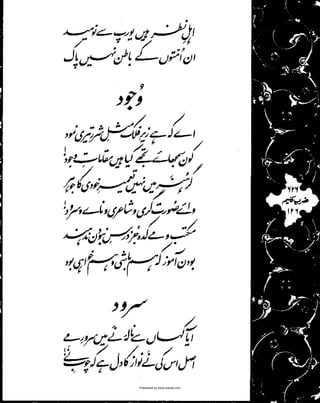 اہلِ نظر ہیں یورپ سے نومید
ان اُمتوں کے باطن نہیں پاک
وُجود
اے کہ ہے زیرِ فلک مثلِ شرر تیری نمود
کون سمجھائے تجھے کیا ہیں مقاماتِ وجود
گر ہنر میں نہیں تعمیرِ خودی کا جوہر
وائے صورت گری و شاعری و نائے و سرود
مکتب و مے کدہ جز درسِ نبودن ندہند
بودن آموز کہ ہم باشی و ہم خواہی بود
سرود
آیا کہاں سے نالۂ نے میں سرورِ مے
اصل اس کی نے نواز کا دل ہے کہ چوبِ نے
ضربِ کلیم
Presented by www.iqbalat.com